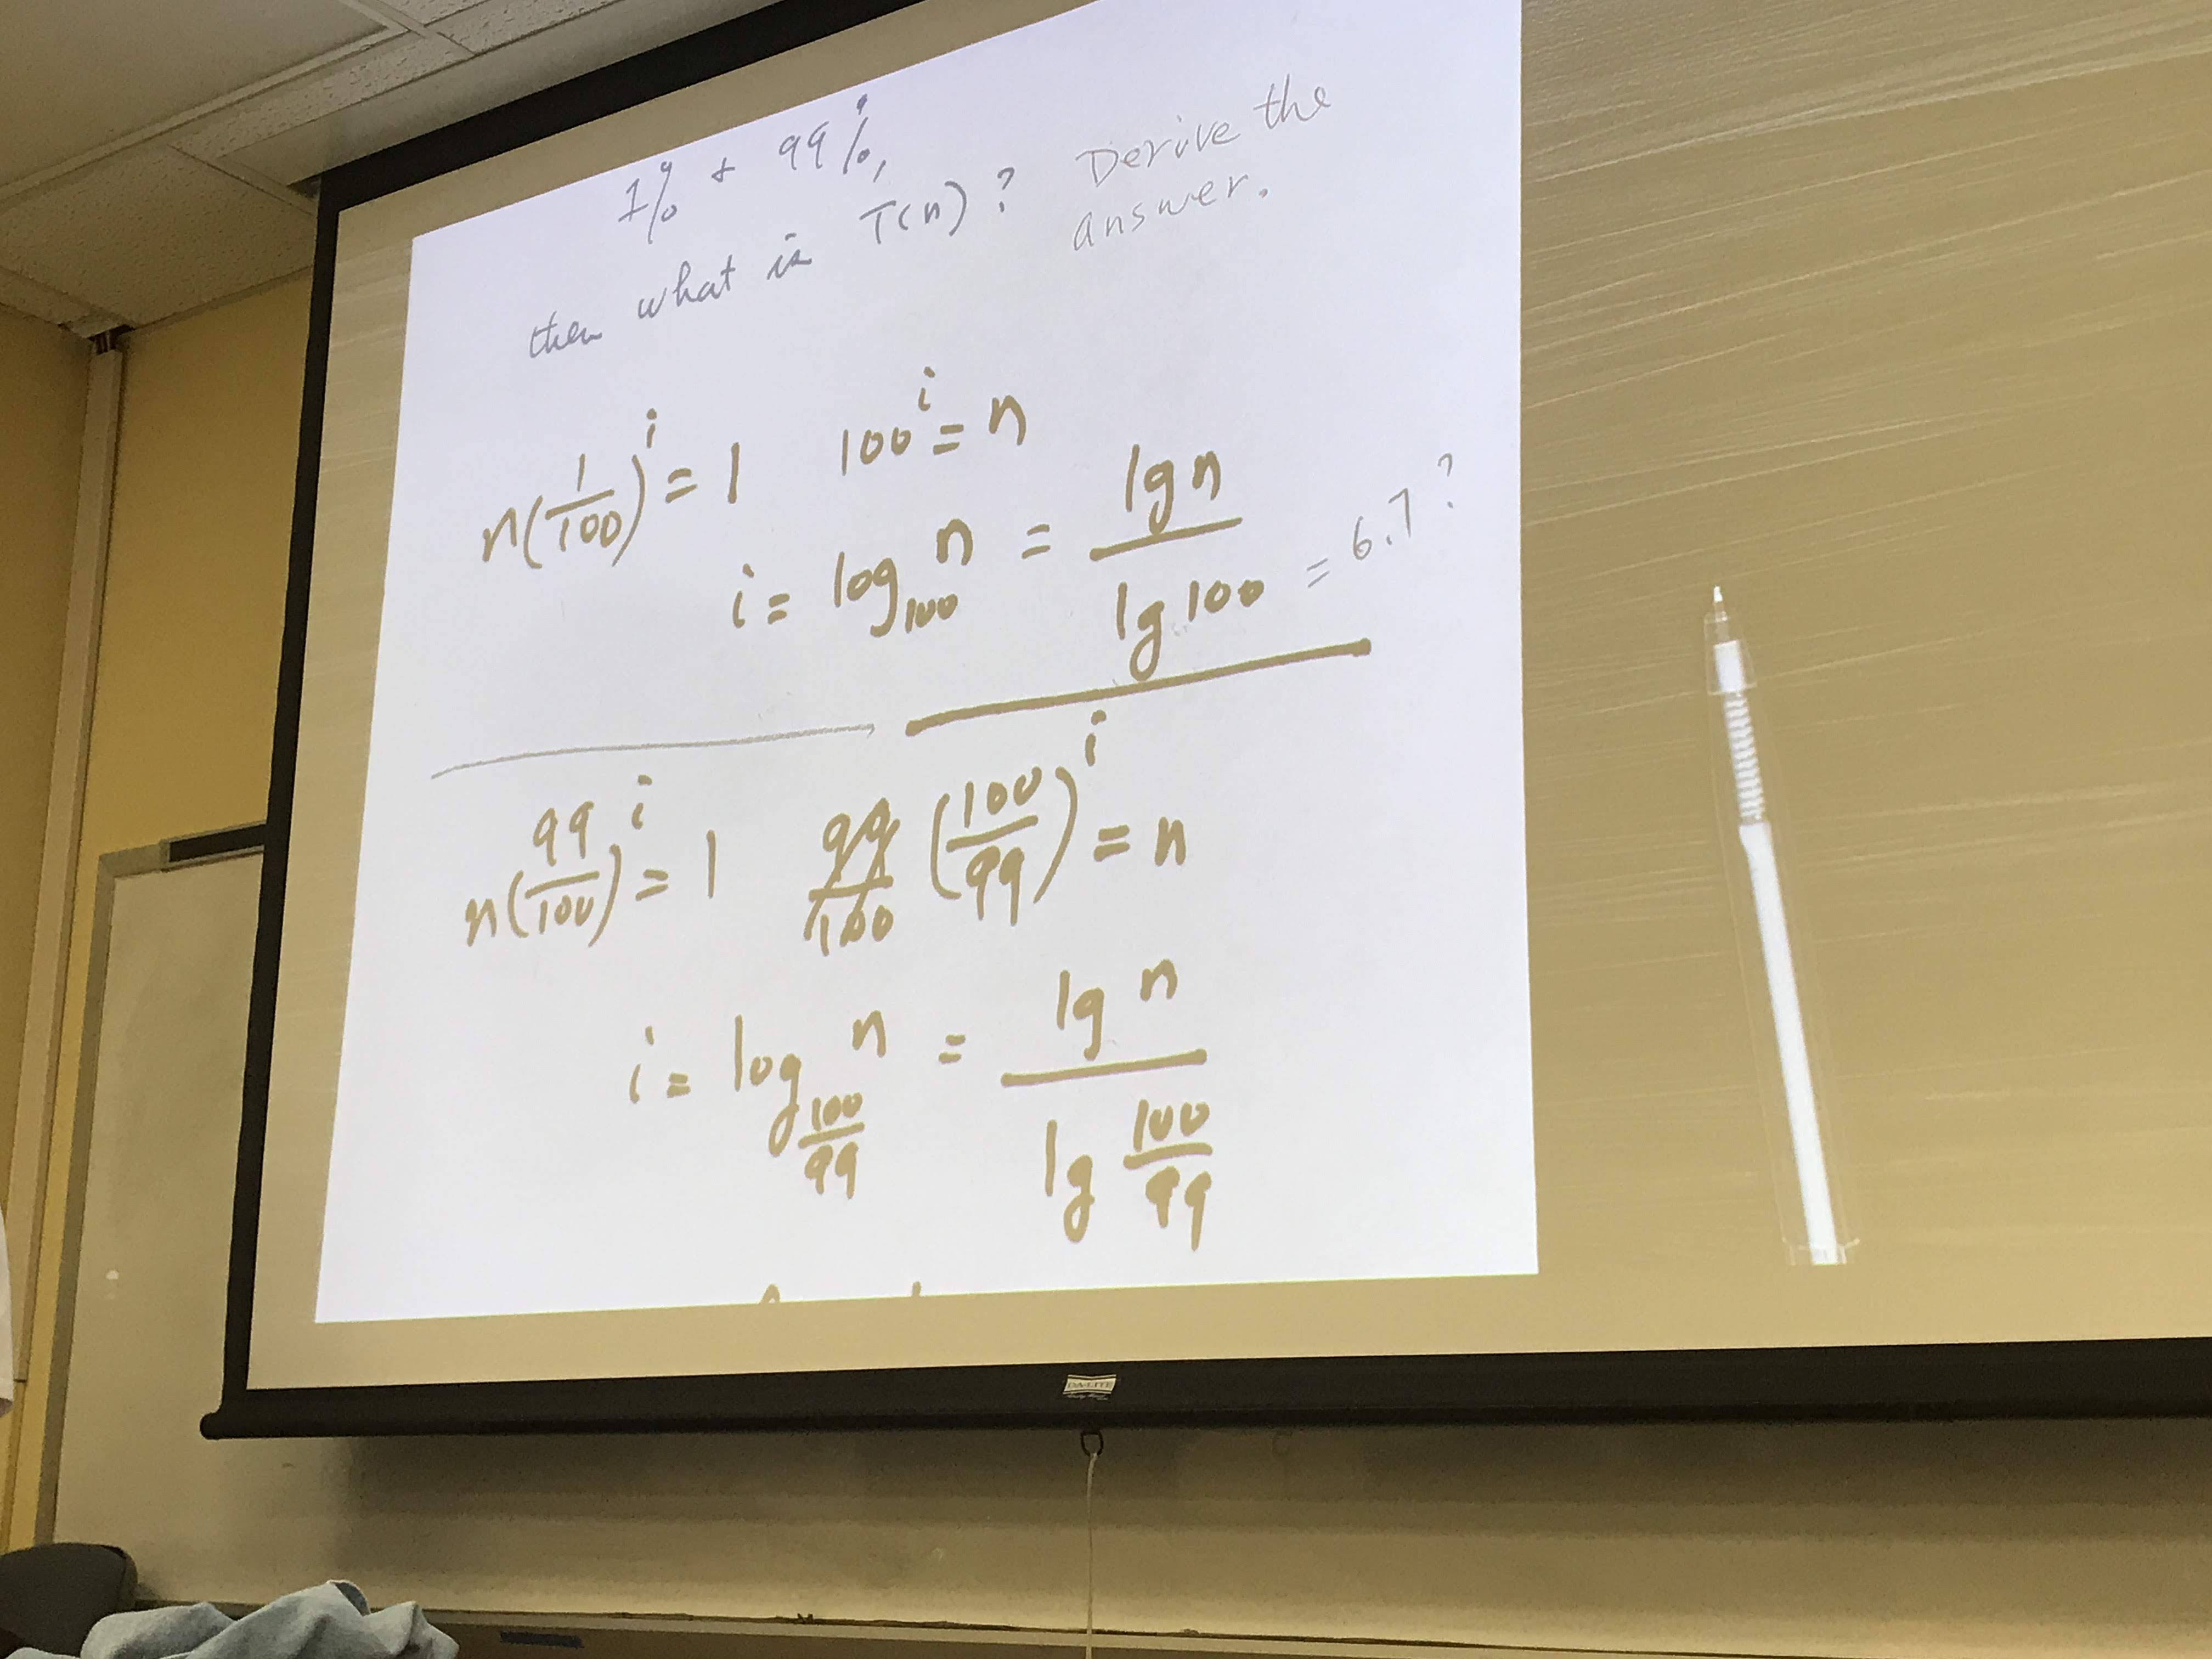 1% + 99%,
then what is T(n)? Derive the
answer.
n(1/100)^i = 1 100^i = n
i = log_100 n = lg n / lg 100 = 6.7?
n(99/100)^i = 1 99/100 (100/99)^i = n
i = log_100/99 n = lg n / lg 100/99
DA-LITE